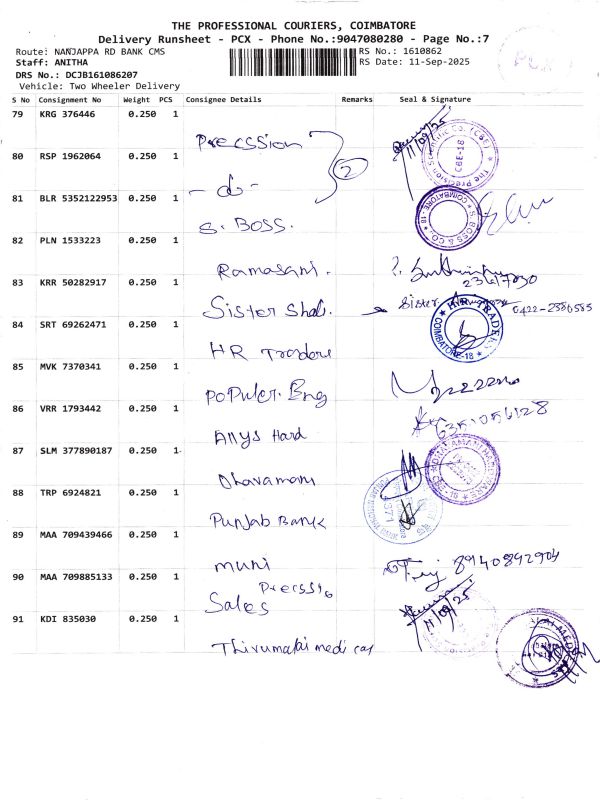 THE PROFESSIONAL COURIERS, COIMBATORE
Delivery Runsheet - PCX - Phone No.:9047080280 - Page No.:7
Route: NANJAPPA RD BANK CMS RS No.: 1610862
Staff: ANITHA RS Date: 11-Sep-2025
DRS No.: DCJB161086207
Vehicle: Two Wheeler Delivery
PCX
S No Consignment No Weight PCS Consignee Details Remarks Seal & Signature
79 KRG 376446 0.250 1
Precssion 2 11/09/25
80 RSP 1962064 0.250 1
- do -
81 BLR 5352122953 0.250 1
S. BOSS. S. BOSS & CO. COIMBATORE - 18
82 PLN 1533223 0.250 1
Ramasani.
83 KRR 50282917 0.250 1
Sister Shab. Sister 0422-2380583
84 SRT 69262471 0.250 1
HR Traders H.R. TRADERS COIMBATORE-18
85 MVK 7370341 0.250 1
Populer. Eng
86 VRR 1793442 0.250 1
Anys Hard
87 SLM 377890187 0.250 1
Dhavamani
88 TRP 6924821 0.250 1
Punjab Bank
89 MAA 709439466 0.250 1
muni 8940892904
90 MAA 709885133 0.250 1
Precssio
Sales 11/09/25
91 KDI 835030 0.250 1
Thirumalai medical